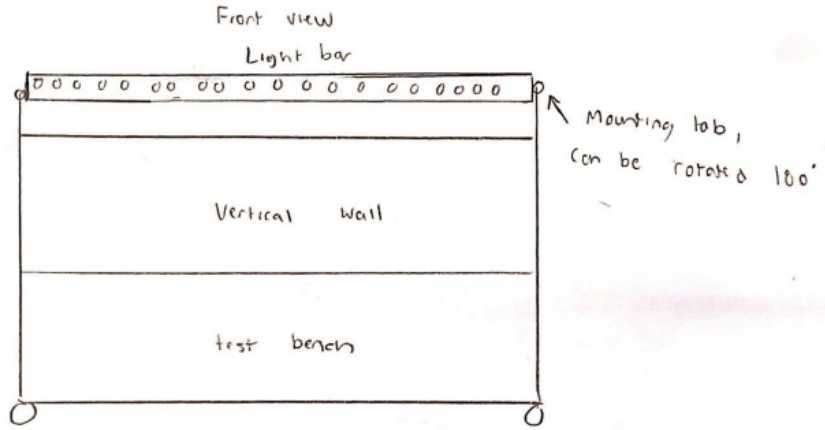 Front view
Light bar
Mounting tab,
Can be rotated 180°
Vertical wall
test bench